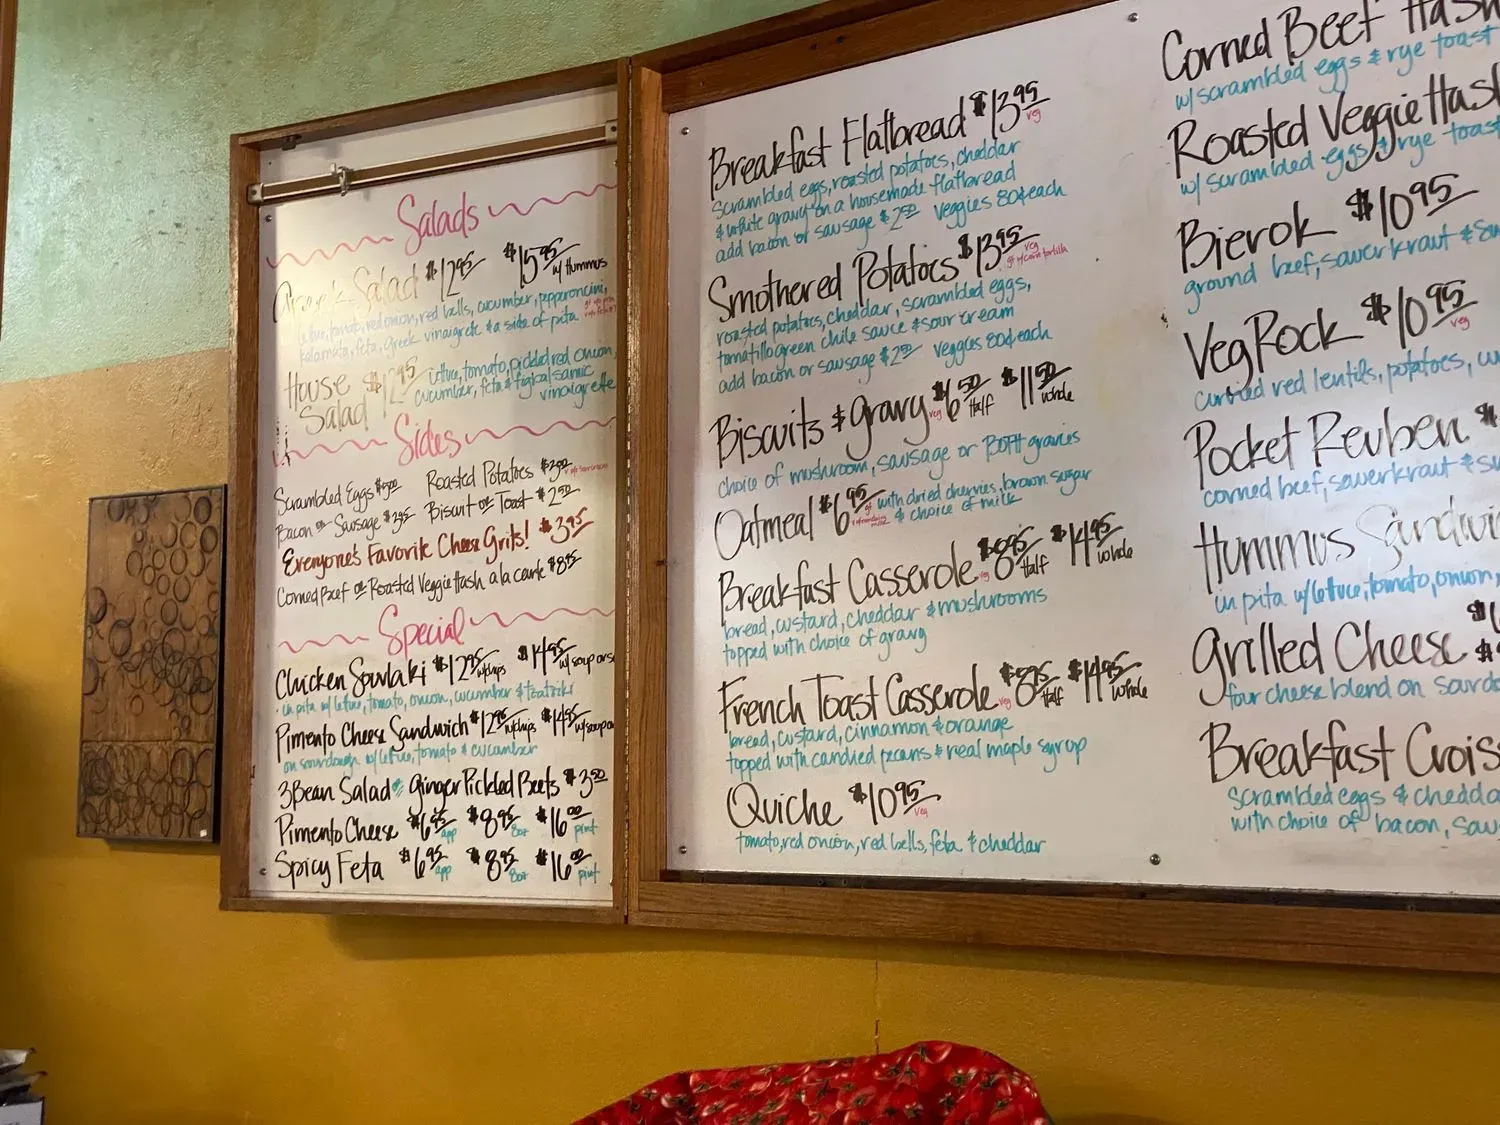 Salads
Greek Salad $12.95 $15.95 w/ Hummus
lettuce, tomato, red onion, red bells, cucumber, pepperoncini,
kalamata, feta, greek vinaigrette & a side of pita
House Salad $12.95
lettuce, tomato, pickled red onion,
cucumber, feta & fig balsamic
vinaigrette
Sides
Scrambled Eggs $5.00
Roasted Potatoes $3.00
Bacon or Sausage $3.95
Biscuit or Toast $2.50
Everyone's Favorite Cheese Grits! $3.95
Corned Beef or Roasted Veggie Hash a la carte $8.95
Special
Chicken Souvlaki $12.95 w/chips $14.95 w/ soup or s
in pita w/ lettuce, tomato, onion, cucumber & tzatziki
Pimento Cheese Sandwich $12.95 w/chips $14.95 w/soup o
on sourdough w/ lettuce, tomato & cucumber
3 Bean Salad or Ginger Pickled Beets $3.50
Pimento Cheese $6.95 app $8.95 8oz $16.00 pint
Spicy Feta $6.95 app $8.95 8oz $16.00 pint
Breakfast Flatbread $13.95 veg
scrambled eggs, roasted potatoes, cheddar
& white gravy on a housemade flatbread
add bacon or sausage $2.50 veggies 80¢ each
Smothered Potatoes $13.95 veg
gf w/corn tortilla
roasted potatoes, cheddar, scrambled eggs,
tomatillo green chile sauce & sour cream
add bacon or sausage $2.50 veggies 80¢ each
Biscuits & Gravy veg $6.50 Half $11.50 whole
choice of mushroom, sausage or BOTH gravies
Oatmeal $6.95 gf with dried cherries, brown sugar
& choice of milk
Breakfast Casserole veg $8.95 Half $14.95 whole
bread, custard, cheddar & mushrooms
topped with choice of gravy
French Toast Casserole veg $8.95 Half $14.95 whole
bread, custard, cinnamon & orange
topped with candied pecans & real maple syrup
Quiche $10.95 veg
tomato, red onion, red bells, feta & cheddar
Corned Beef Hash
w/ scrambled eggs & rye toast
Roasted Veggie Hash
w/ scrambled eggs & rye toast
Bierok $10.95
ground beef, sauerkraut & Sw
VegRock $10.95 veg
curried red lentils, potatoes,
Pocket Reuben $
corned beef, sauerkraut & Sw
Hummus Sandwi
in pita w/ lettuce, tomato, onion,
Grilled Cheese $
four cheese blend on sourdo
Breakfast Crois
scrambled eggs & chedda
with choice of bacon, sau